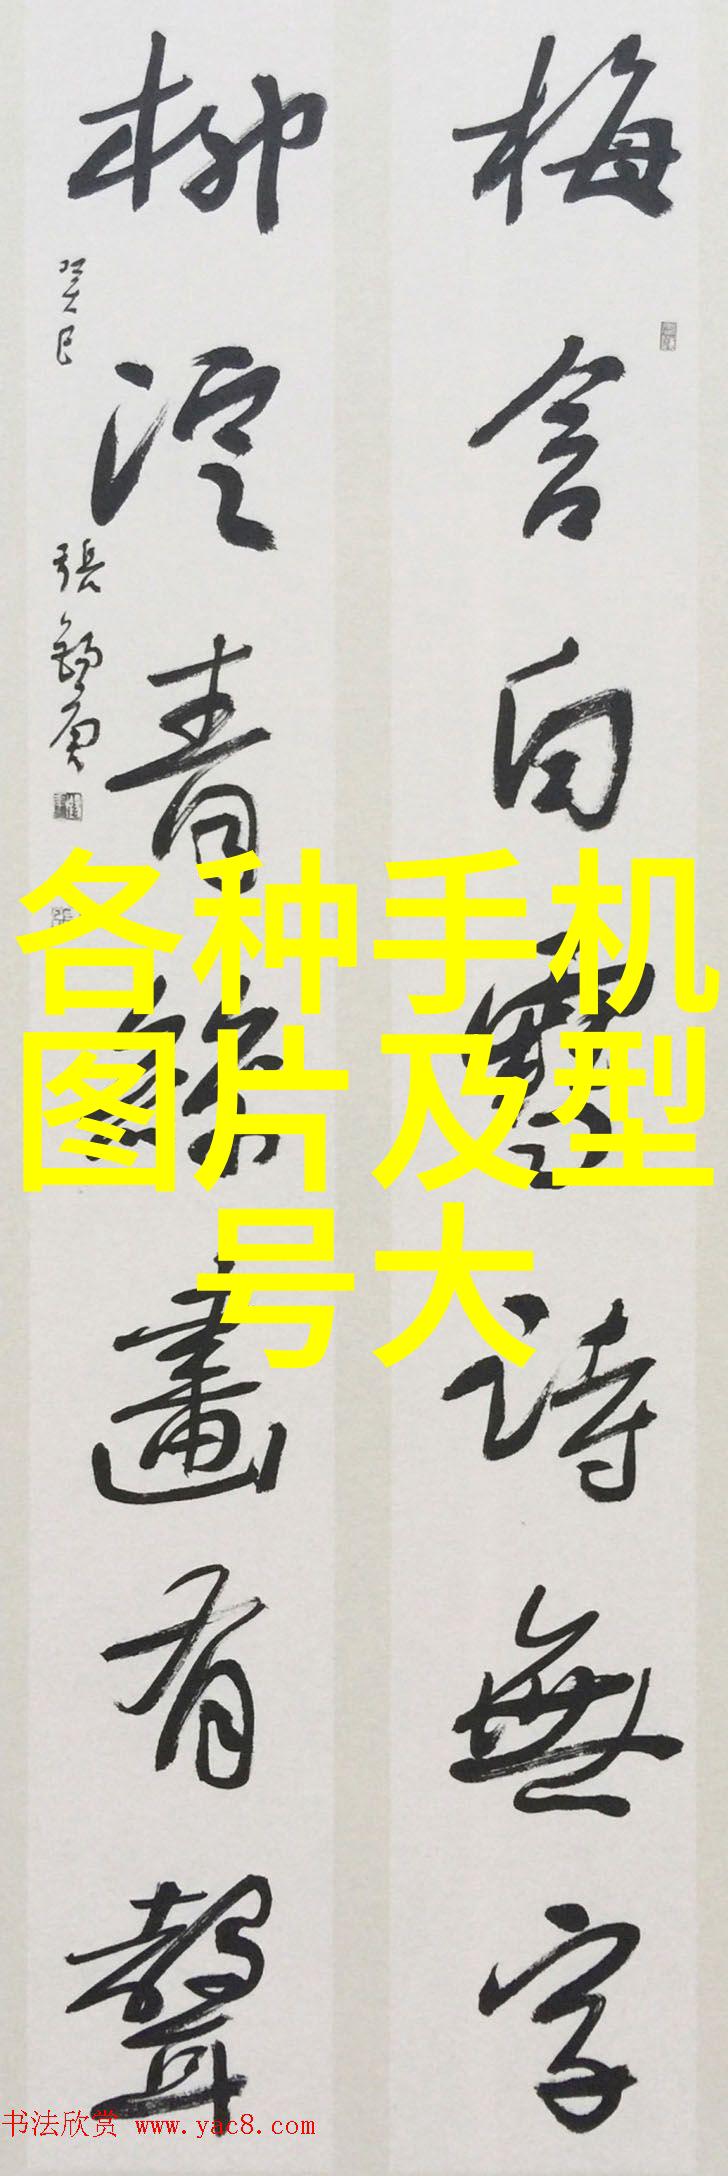 梅含白雪詩無字
柳浥青絲畫有聲
癸巳
張錫庚
各种手机
图片及型
号大
书法欣赏 www.yac8.com